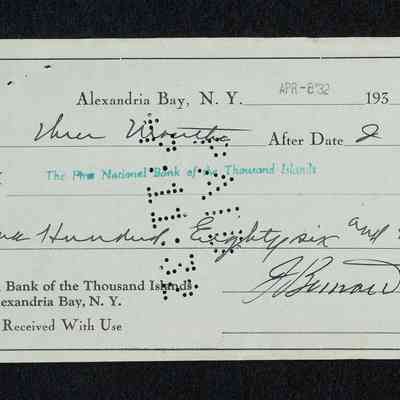 Alexandria Bay, N. Y. APR-8'32 193
Three Months After Date
The First National Bank of the Thousand Islands
Hundred Eighty six and
Bank of the Thousand Islands
lexandria Bay, N. Y.
Received With Use